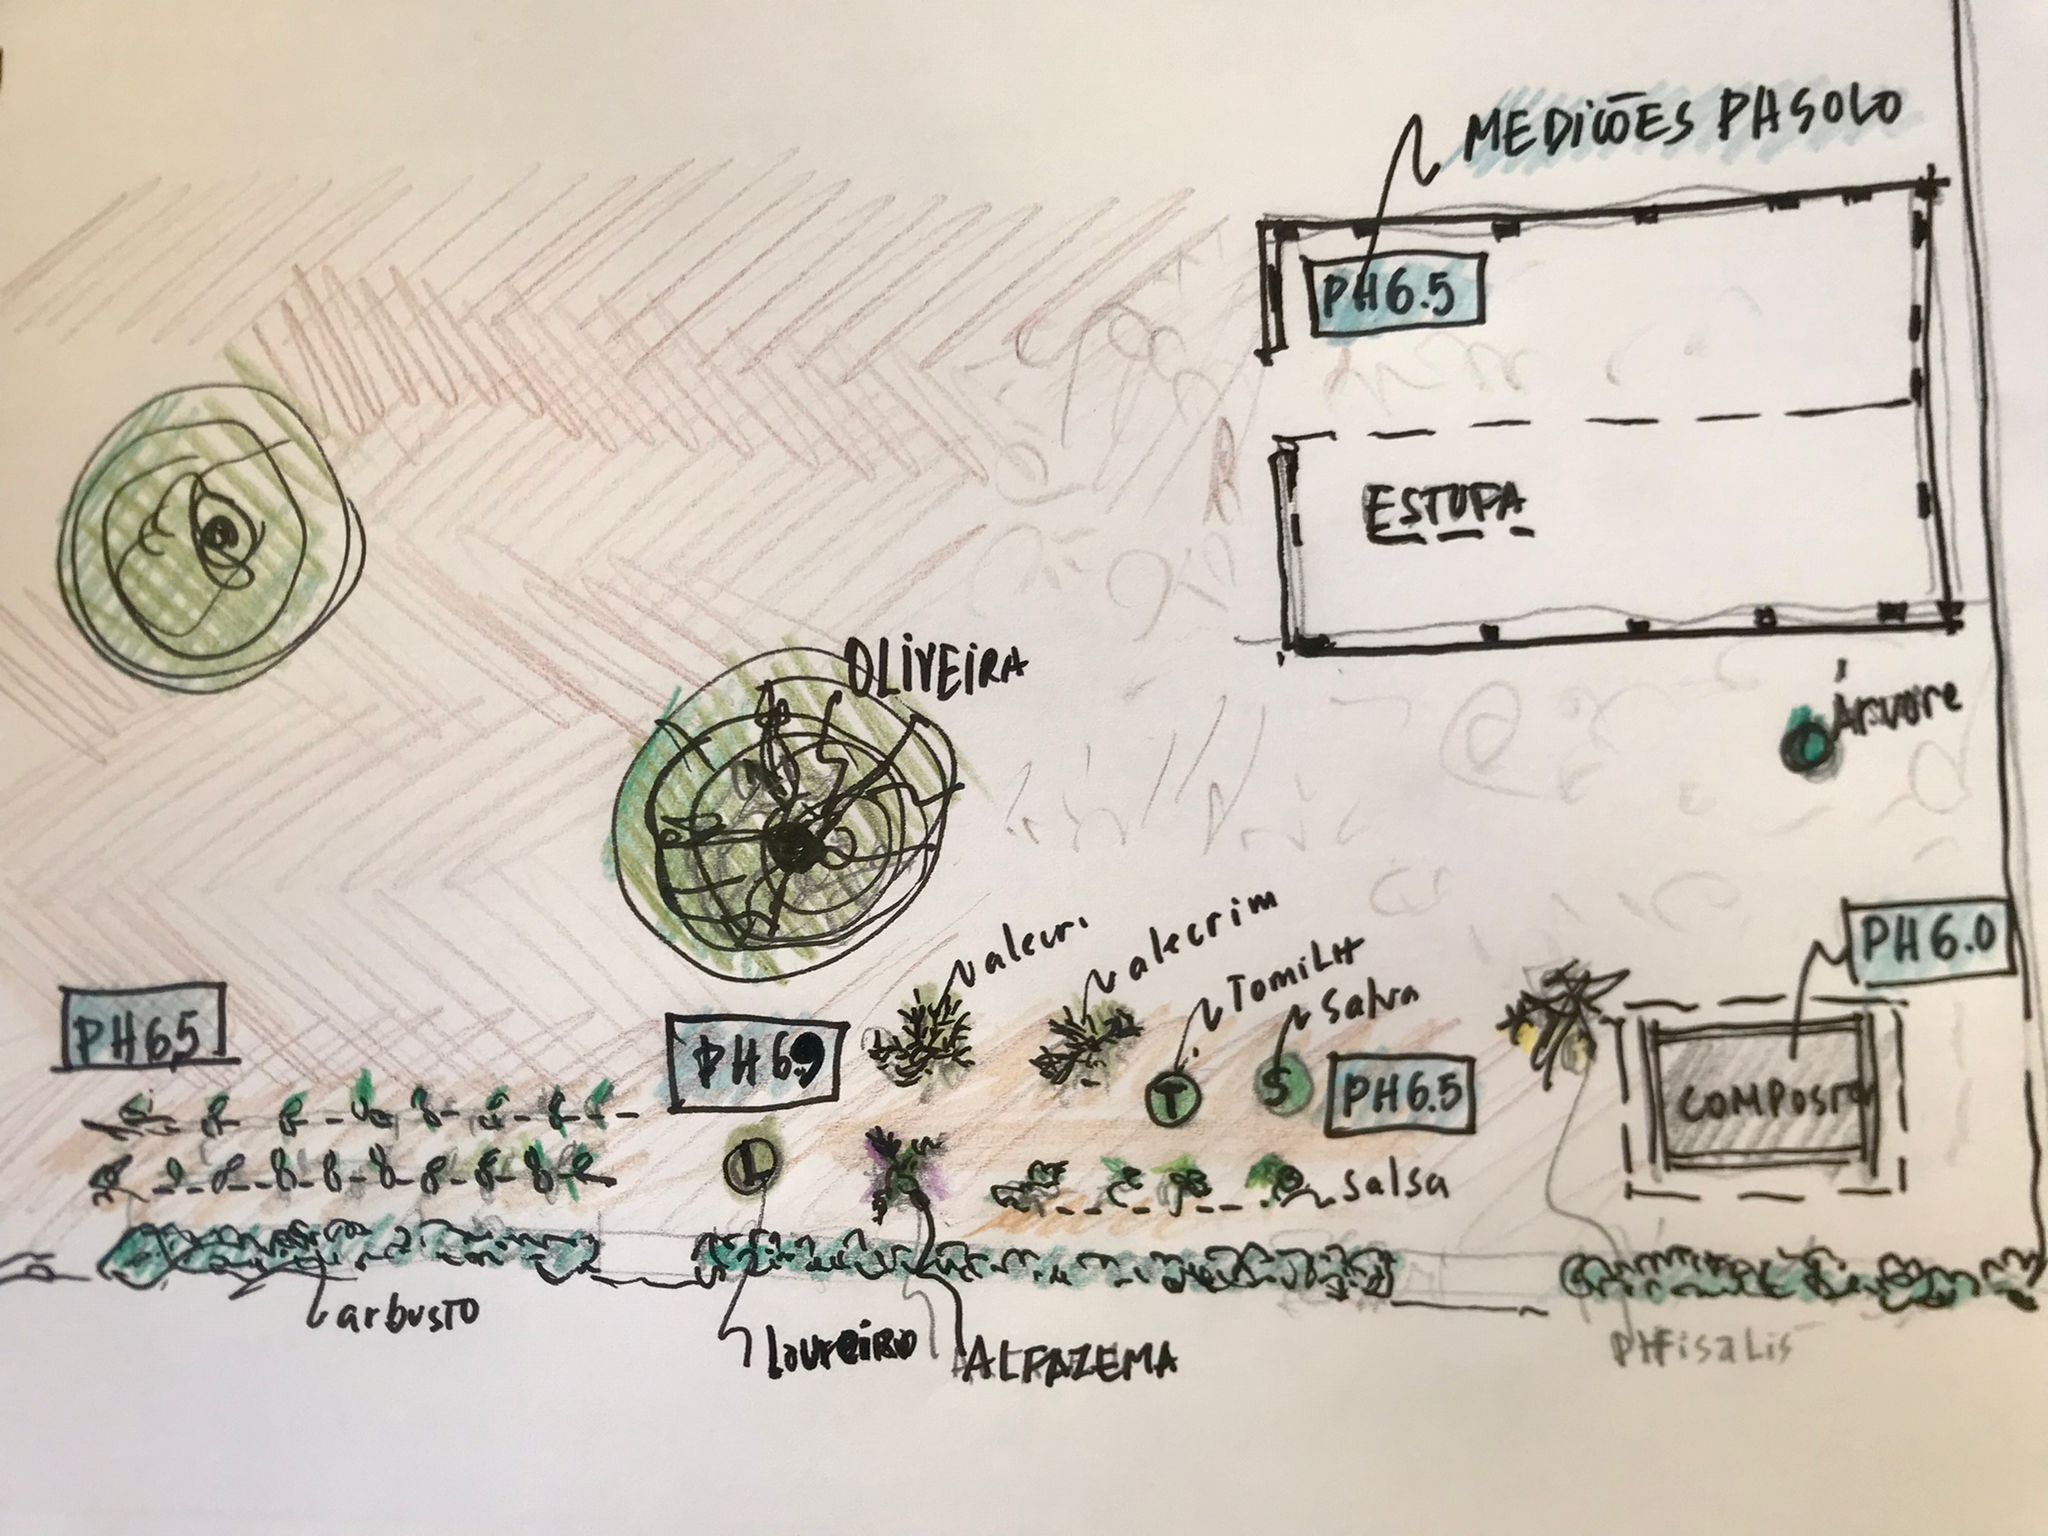 MEDIÇÕES PH SOLO
PH6.5
ESTUFA
Árvore
OLIVEIRA
alecri
alecrim
TOMiLH
Salva
PH6.0
PH6.5
PH6.9
T
S
PH6.5
COMPOSTO
L
Salsa
arbusto
loureiro
ALFAZEMA
PHFisaLis